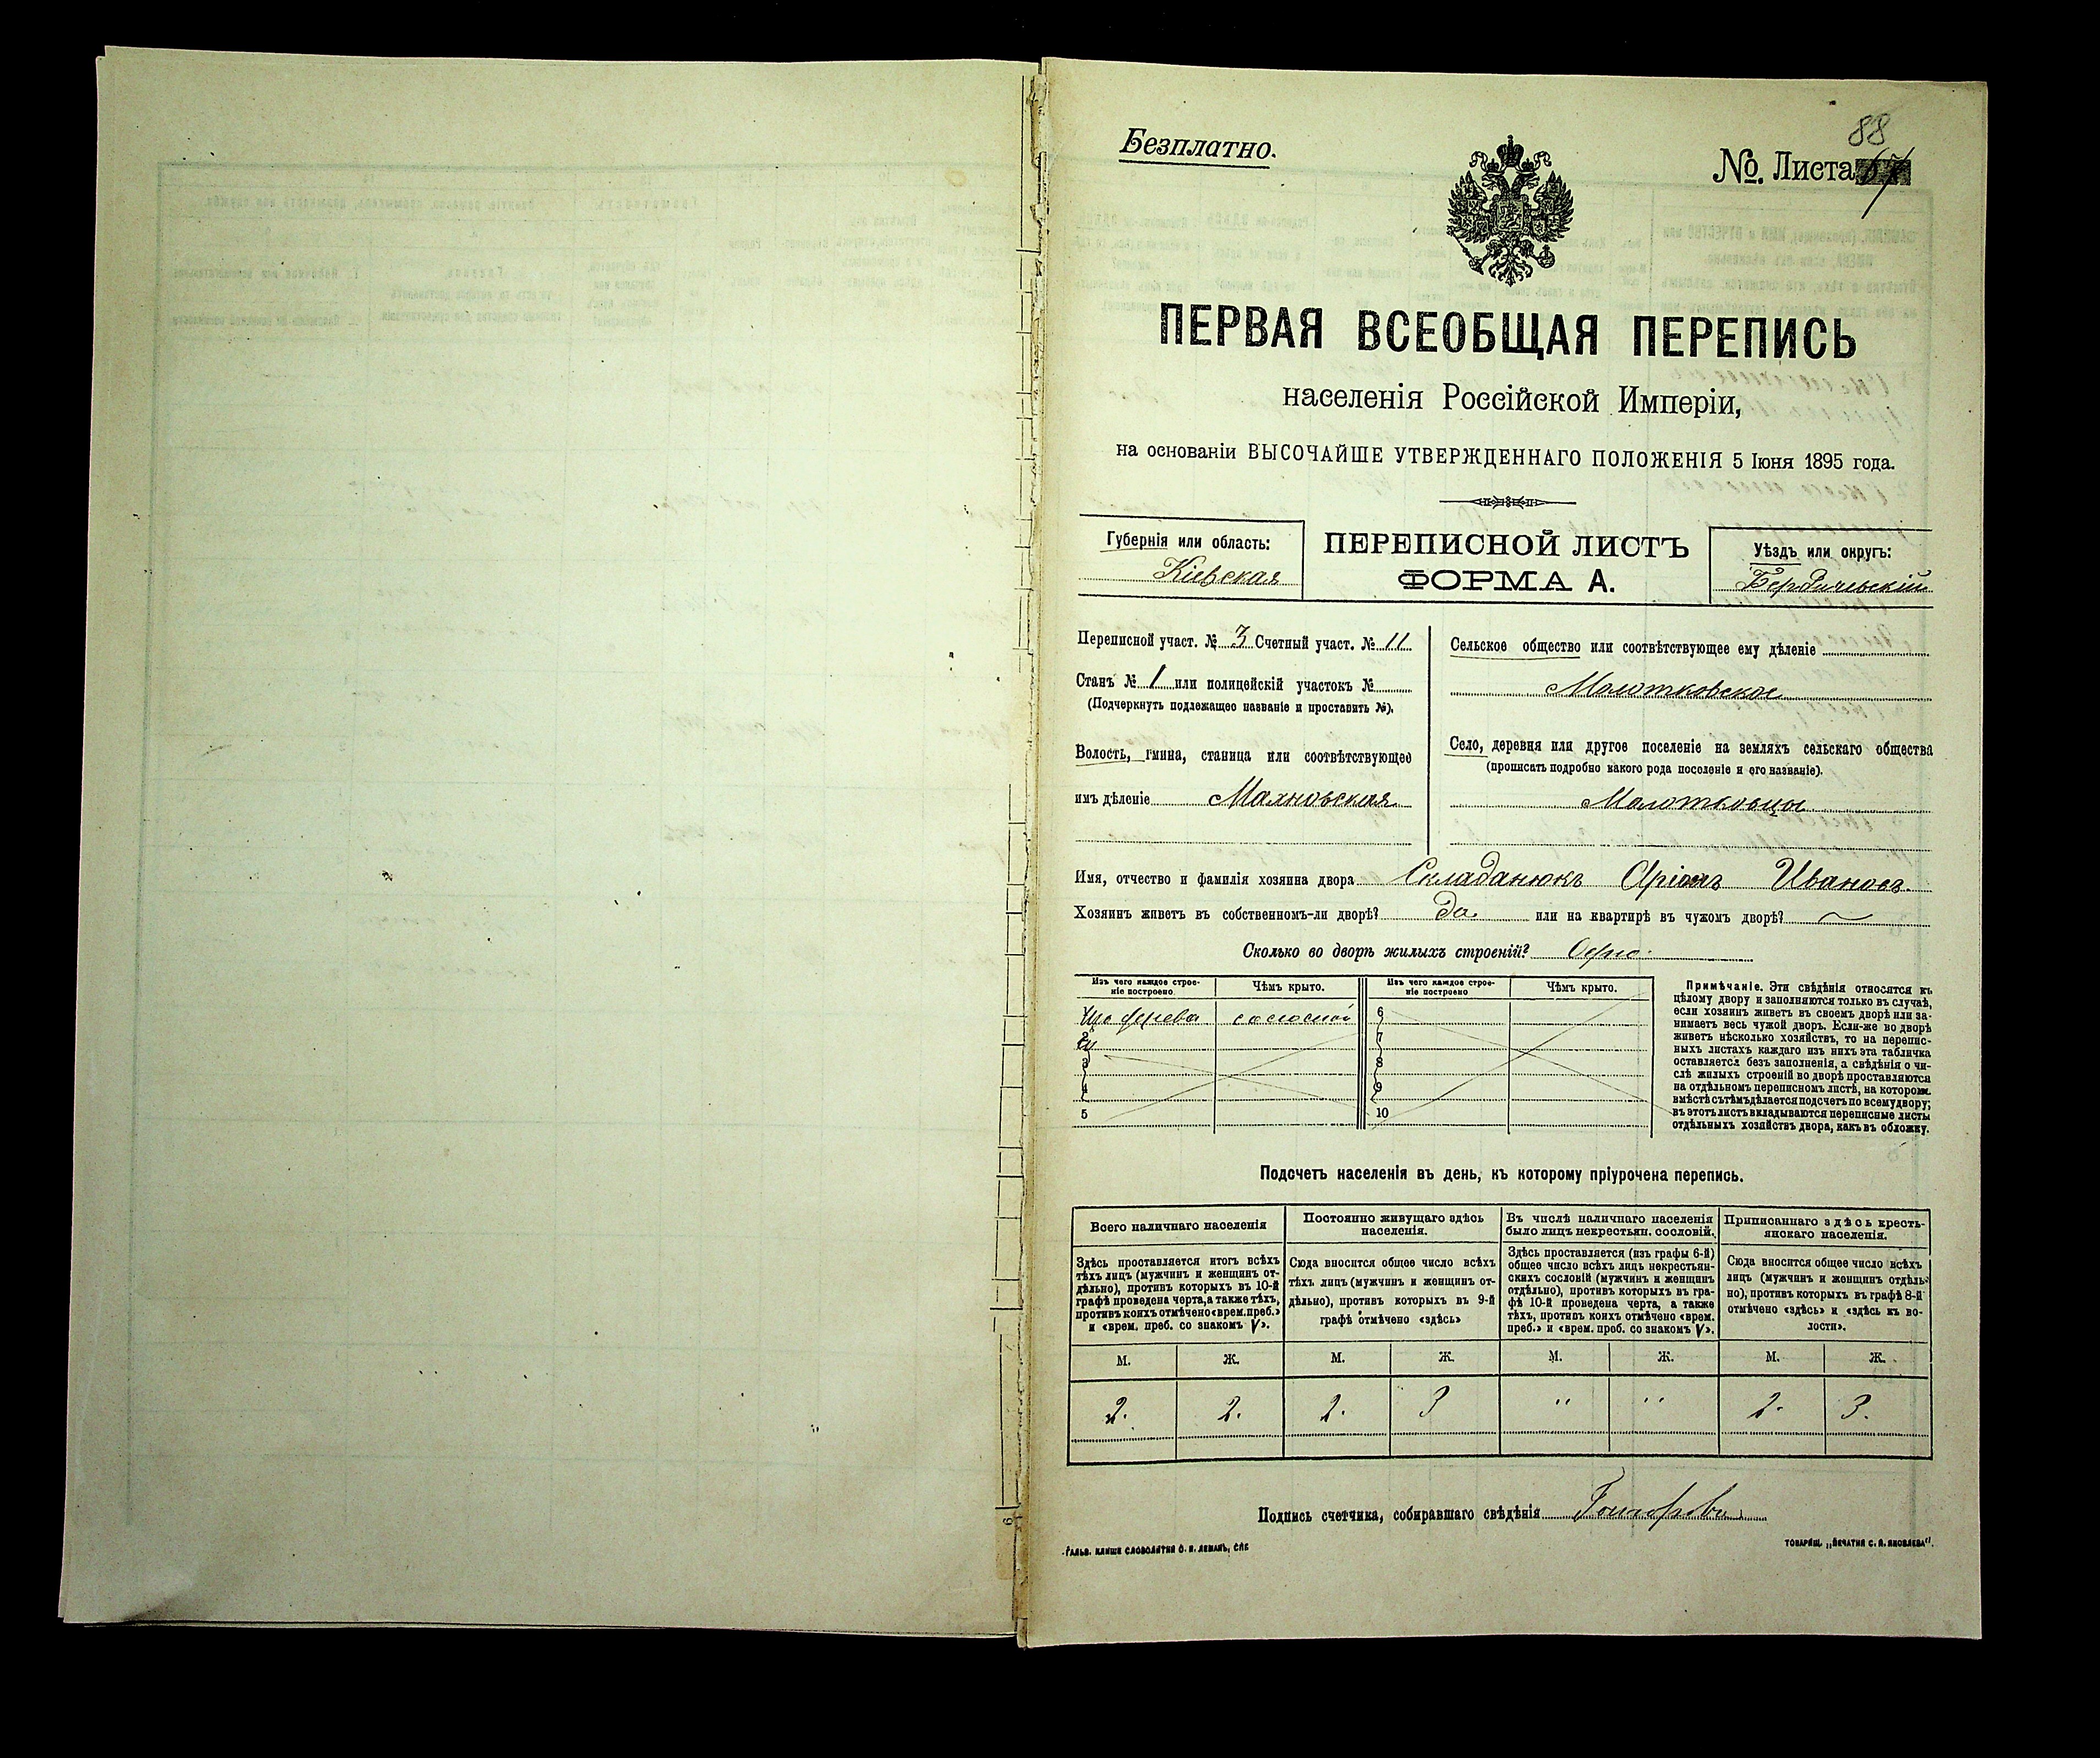 88
Безплатно.
№ Листа 67
ПЕРВАЯ ВСЕОБЩАЯ ПЕРЕПИСЬ
населенія Россійской Имперіи,
на основаніи ВЫСОЧАЙШЕ УТВЕРЖДЕННАГО ПОЛОЖЕНІЯ 5 Іюня 1895 года.
Губернія или область:
Кіевская
ПЕРЕПИСНОЙ ЛИСТЪ
ФОРМА А.
Уѣздъ или округъ:
Бердичевскій
Переписной участ. № 3 Счетный участ. № 11
Станъ № 1 или полицейскій участокъ №
(Подчеркнуть подлежащее названіе и проставить №).
Волость, гмина, станица или соотвѣтствующее
имъ дѣленіе Махновская
Сельское общество или соотвѣтствующее ему дѣленіе
Молотковское
Село, деревня или другое поселеніе на земляхъ сельскаго общества
(прописать подробно какого рода поселеніе и его названіе).
Молотковцы
Имя, отчество и фамилія хозяина двора Складанюкъ Иванов.
Хозяинъ живетъ въ собственномъ-ли дворѣ? Да или на квартирѣ въ чужомъ дворѣ?
Сколько во дворѣ жилыхъ строеній? Одно.
Изъ чего каждое строе-
ніе построено
Чѣмъ крыто.
Изъ чего каждое строе-
ніе построено
Чѣмъ крыто.
Изъ дерева соломой
6
2
7
3
8
4
9
5
10
Примѣчаніе. Эти свѣдѣнія относятся къ
цѣлому двору и заполняются только въ случаѣ,
если хозяинъ живетъ въ своемъ дворѣ или за-
нимаетъ весь чужой дворъ. Если-же во дворѣ
живетъ нѣсколько хозяйствъ, то на перепис-
ныхъ листахъ каждаго изъ нихъ эта табличка
оставляется безъ заполненія, а свѣдѣнія о чи-
слѣ жилыхъ строеній во дворѣ проставляются
на отдѣльномъ переписномъ листѣ, на которомъ
вмѣстѣ съ тѣмъ дѣлается подсчетъ по всему двору;
въ этотъ листъ вкладываются переписные листы
отдѣльныхъ хозяйствъ двора, какъ въ обложку.
Подсчетъ населенія въ день, къ которому пріурочена перепись.
Всего наличнаго населенія
Здѣсь проставляется итогъ всѣхъ
тѣхъ лицъ (мужчинъ и женщинъ от-
дѣльно), противъ которыхъ въ 10-й
графѣ проведена черта, а также тѣхъ,
противъ коихъ отмѣчено «врем. преб.»
и «врем. преб. со знакомъ V».
Постоянно живущаго здѣсь
населенія.
Сюда вносится общее число всѣхъ
тѣхъ лицъ (мужчинъ и женщинъ от-
дѣльно), противъ которыхъ въ 9-й
графѣ отмѣчено «здѣсь»
Въ числѣ наличнаго населенія
было лицъ некрестьян. сословій.
Здѣсь проставляется (изъ графы 6-й)
общее число всѣхъ лицъ некрестьян-
скихъ сословій (мужчинъ и женщинъ
отдѣльно), противъ которыхъ въ гра-
фѣ 10-й проведена черта, а также
тѣхъ, противъ коихъ отмѣчено «врем.
преб.» и «врем. преб. со знакомъ V».
Приписаннаго здѣсь кресть-
янскаго населенія.
Сюда вносится общее число всѣхъ
лицъ (мужчинъ и женщинъ отдѣль-
но), противъ которыхъ въ графѣ 8-й
отмѣчено «здѣсь» и «здѣсь въ во-
лости».
М. Ж. М. Ж. М. Ж. М. Ж.
2. 2. 2. 3 " " 2. 3.
Подпись счетчика, собиравшаго свѣдѣнія
ГАЛЬВ. КЛИШЕ СЛОВОЛИТНИ О. И. ЛЕМАНЪ, СПБ
ТОВАРИЩ. „ПЕЧАТНЯ С. П. ЯКОВЛЕВА“.